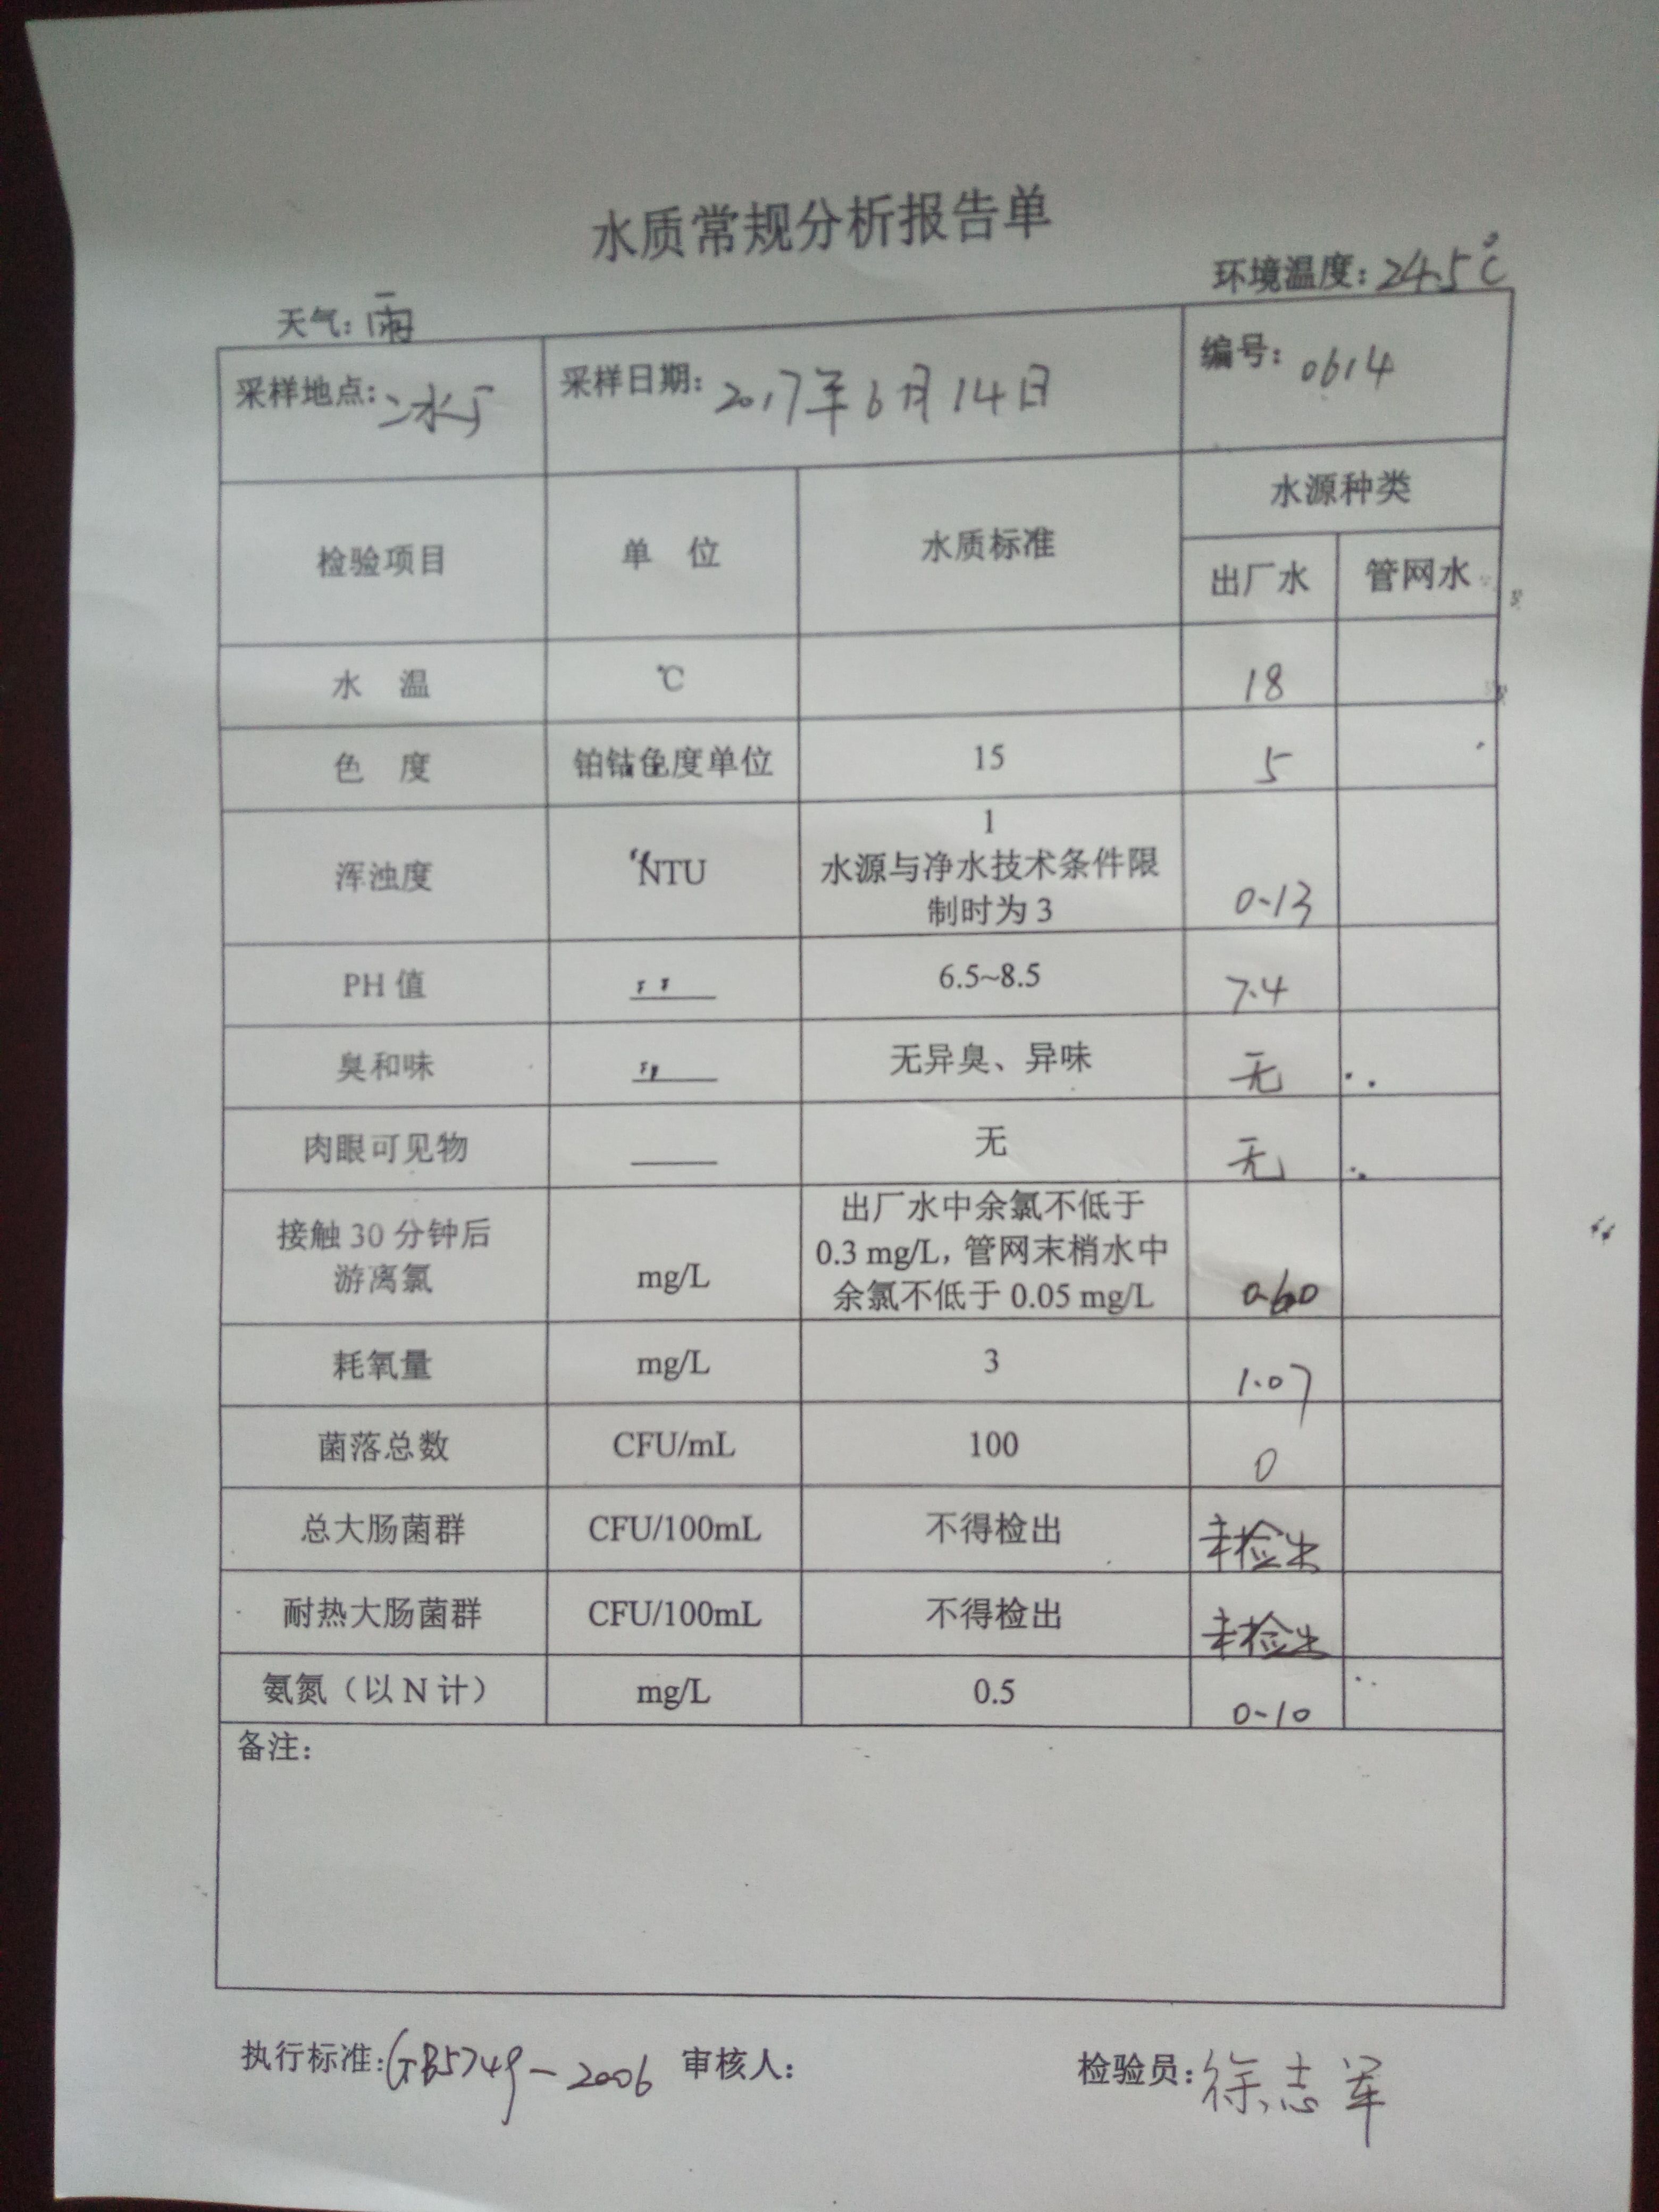 水质常规分析报告单
天气：雨 环境温度：24.5℃
采样地点：二水厂 采样日期：2017年6月14日 编号：0614
检验项目 单 位 水质标准 水源种类
出厂水 管网水
水 温 ℃ 18
色 度 铂钴色度单位 15 5
浑浊度 NTU 1
水源与净水技术条件限
制时为 3 0.13
PH 值 —— 6.5~8.5 7.4
臭和味 —— 无异臭、异味 无
肉眼可见物 —— 无 无
接触 30 分钟后
游离氯 mg/L 出厂水中余氯不低于
0.3 mg/L，管网末梢水中
余氯不低于 0.05 mg/L 0.60
耗氧量 mg/L 3 1.07
菌落总数 CFU/mL 100 0
总大肠菌群 CFU/100mL 不得检出 未检出
耐热大肠菌群 CFU/100mL 不得检出 未检出
氨氮（以 N 计） mg/L 0.5 0.10
备注：
执行标准：GB5749-2006 审核人： 检验员：徐志军